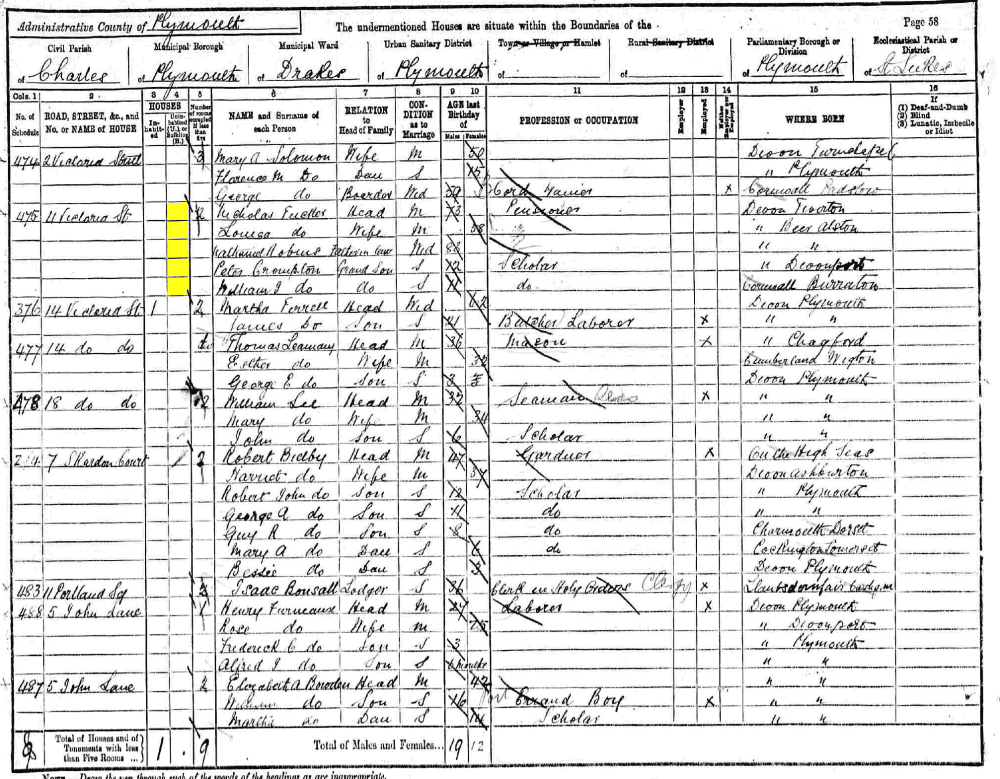 Administrative County of Plymouth The undermentioned Houses are situate within the Boundaries of the Page 58
Civil Parish Municipal Borough Municipal Ward Urban Sanitary District Town or Village or Hamlet Rural Sanitary District Parliamentary Borough or Division Ecclesiastical Parish or District
of Charles of Plymouth of Drakes of Plymouth of of of Plymouth of St. Lukes
Cols. 1 2 3 4 5 6 7 8 9 10 11 12 13 14 15 16
No. of Schedule ROAD, STREET, &c., and No. or NAME of HOUSE HOUSES Inhabited Uninhabited (U.) or Building (B.) Number of rooms occupied if less than five NAME and Surname of each Person RELATION to Head of Family CONDITION as to Marriage AGE last Birthday of Males Females PROFESSION or OCCUPATION Employer Employed WHERE BORN If (1) Deaf-and-Dumb (2) Blind (3) Lunatic, Imbecile or Idiot
474 2 Victoria Street 3 Mary A Solomon Wife M 50 Devon
Florence M Do Dau S 15 " Plymouth
George do Boarder Wid 59 x Cornwall Padstow
475 4 Victoria St. 2 Nicholas Tucker Head M 73 Pensioner Devon Tiverton
Louisa do Wife M 58 " Beer Alston
Nathaniel Robins Father in law Wid 86 " "
Peter Crompton Grand Son S 12 Scholar " Devonport
William J do do S 11 do Cornwall Burraton
376 14 Victoria St 1 2 Martha Ferrell Head Wid 62 Devon Plymouth
James Do Son S 21 Butcher Laborer x " "
477 14 do do Thomas Leaman Head M 36 Mason x " Chagford
Esther do Wife M 32 Cumberland Wigton
George E do Son S 3 Devon Plymouth
478 18 do do 2 William Lee Head M 32 Seaman x " "
Mary do Wife M 34 " "
John do Son S 6 Scholar " "
7 Skardon Court 2 Robert Bidby Head M 47 Gardner x On the High Seas
Harriet do Wife M 37 Devon Ashburton
Robert John do Son S 12 Scholar " Plymouth
George A do Son S 11 do " "
Guy R do Son S 8 do Charmouth Dorset
Mary A do Dau S 6 do Cockington Somerset
Bessie do Dau S Devon Plymouth
483 11 Portland Sq 2 Isaac Bonsall Lodger S 36 Clerk in Holy Orders x
488 5 John Lane 1 Henry Furneaux Head M 27 Laborer x Devon Plymouth
Rose do Wife M 25 " Devonport
Frederick C do Son S 3 " Plymouth
Alfred J do Son S 6 months " "
487 5 John Lane 2 Elizabeth A Bowden Head M 42 " "
William do Son S 16 Errand Boy x " "
Martha do Dau S 14 Scholar " "
8 Total of Houses and of Tenements with less than Five Rooms ... 1 . 9 Total of Males and Females... 19 12
NOTE.—Draw the pen through such of the words of the headings as are inappropriate.